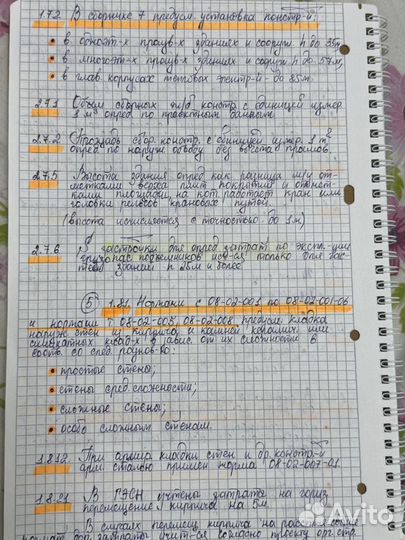 1.7.2. В сборнике 7 предусм. установка констр-й:
• в одноэт-х произв-х зданиях и сооруж. h до 35м,
• в многоэт-х произв-х зданиях и сооруж h до 57м,
• в глав. корпусах тепловых центр-й - до 85м.
2.7.1 Объем сборных ж/б констр. с единицей измер.
1 м³ опред по проектным данным.
2.7.2 Площадь сбор. констр. с единицей измер. 1 м²
опред по наруж обводу без вычета проемов.
2.7.5 Высота здания опред как разница м/у от-
метками верха плит покрытия и отмет-
ками площадки, на кот. работает кран или
головки рельсов крановых путей.
(высота исчисляется с точностью до 1м)
2.7.6 застройки для опред затрат по эксп-ции
грузопас подъемников только для
зданий h 25м и более
⑧ 1.8.1 Нормами с 08-02-001 по 08-02-001-06
и нормами т 08-02-003, 08-02-008 предусм. кладка
наруж. стен из кирпича и камней керамич. или
силикатных в завис. от их сложности в
соотв. со след. разнов-ю:
• простые стены;
• стены сред. сложности;
• сложные стены;
• особо сложным стенам.
1.8.12. При армир кладки стен и др. констр-й
арм. сталью примен норма 08-02-007-01.
1.8.21 В ГЭСН учтены затраты на гориз.
перемещение кирпича на 5м.
В случаях перемещ кирпича на расст
затраты учит-ся согласно проекту орг. стр.
Avito